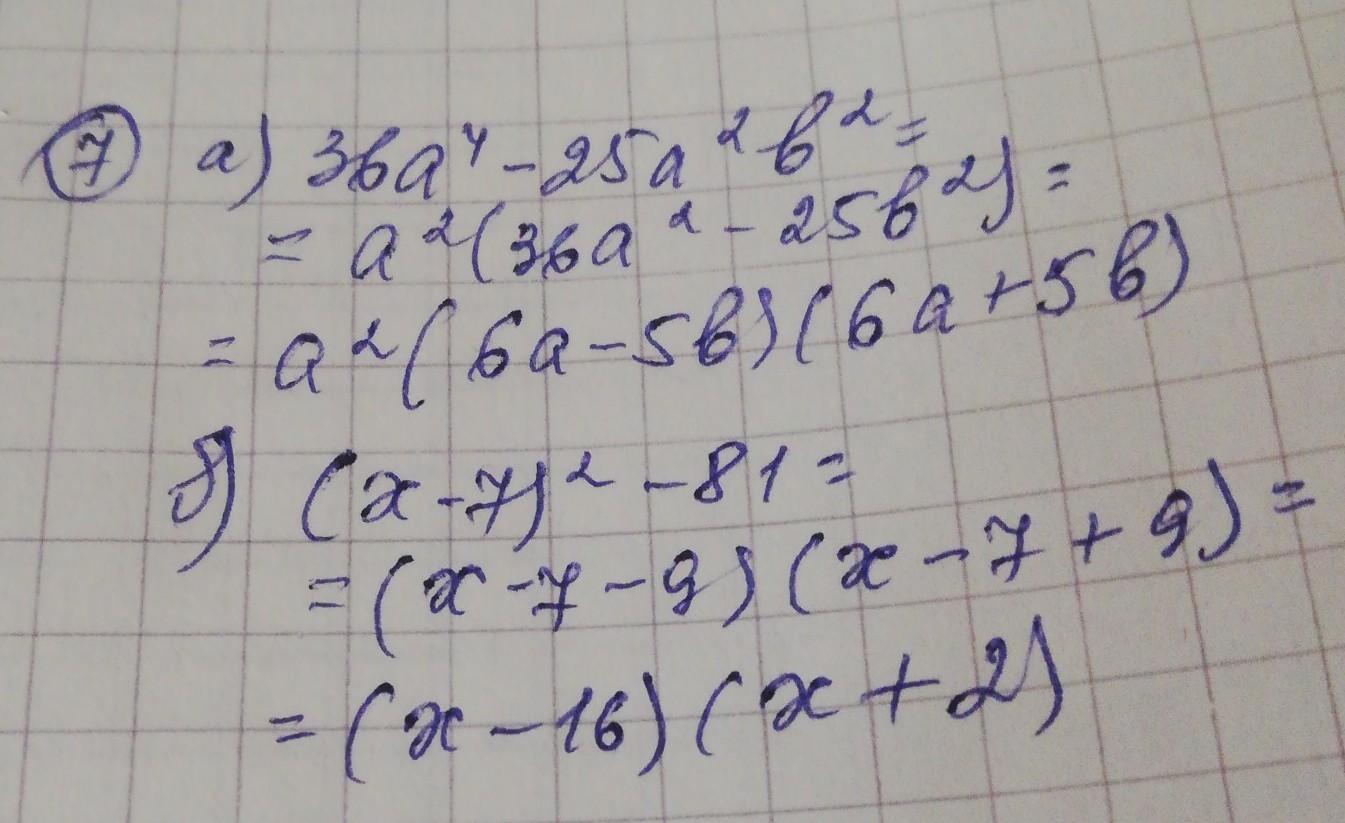 7 а) 36a⁴ - 25a²b² =
= a²(36a² - 25b²) =
= a²(6a - 5b)(6a + 5b)
б) (x - 7)² - 81 =
= (x - 7 - 9)(x - 7 + 9) =
= (x - 16)(x + 2)